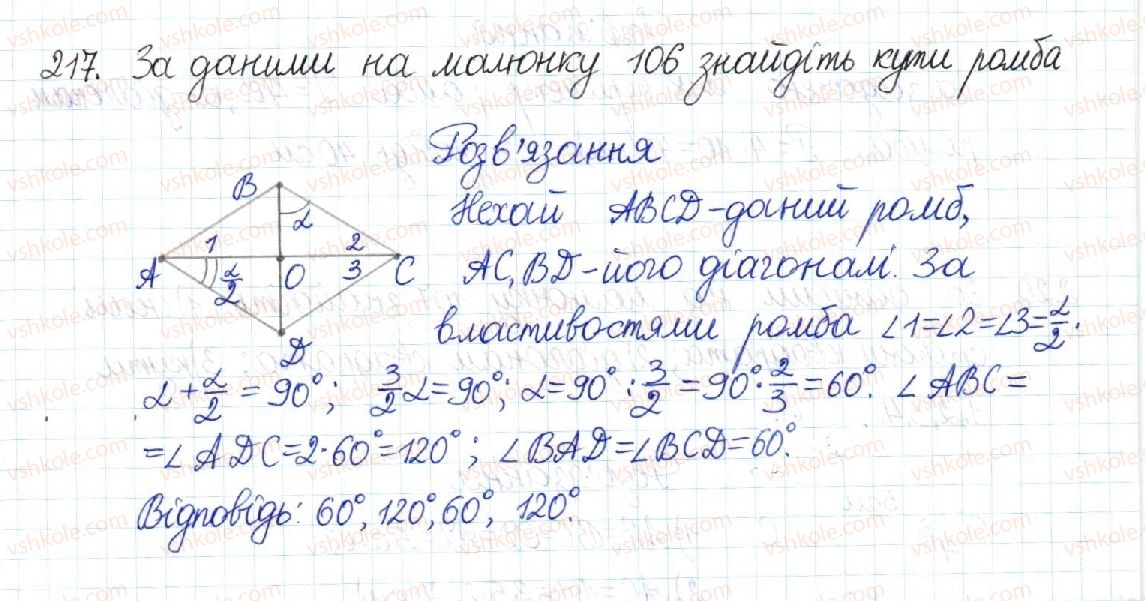 217. За даними на малюнку 106 знайдіть кути ромба
Розв'язання
B
α
1
2
A
α/2
O
3
C
D
Нехай ABCD-даний ромб,
AC, BD-його діагоналі. За
властивостями ромба ∠1=∠2=∠3=α/2.
α + α/2 = 90°; 3/2 α = 90°; α = 90° : 3/2 = 90° · 2/3 = 60°. ∠ABC =
= ∠ADC = 2·60° = 120°; ∠BAD = ∠BCD = 60°.
Відповідь: 60°, 120°, 60°, 120°.
vshkole.com